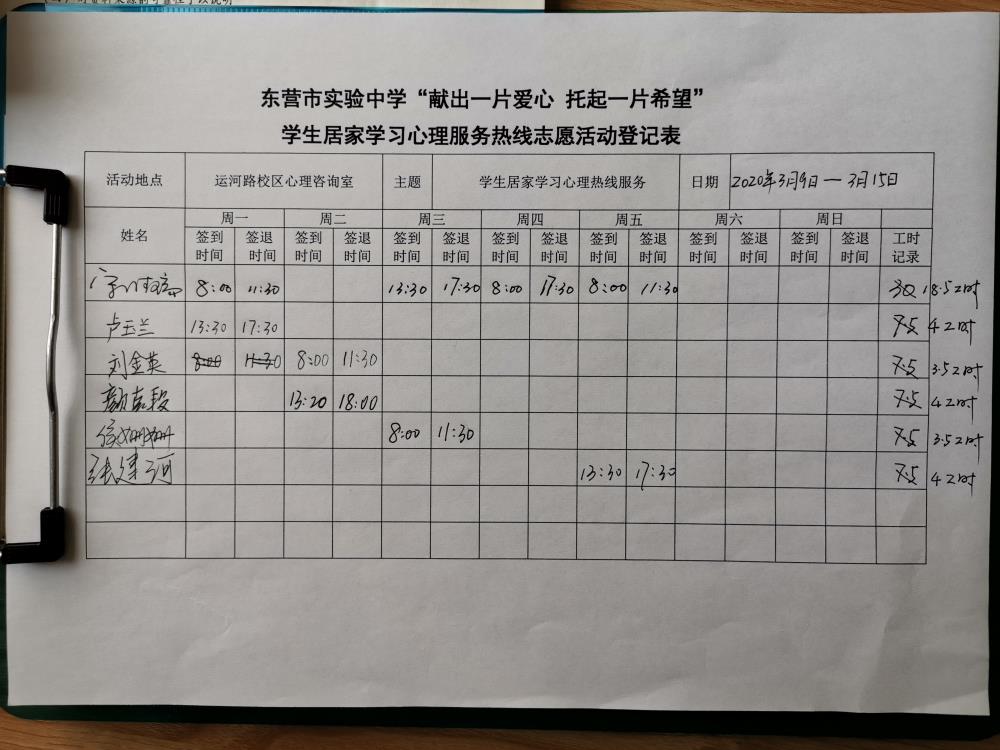 东营市实验中学“献出一片爱心 托起一片希望”
学生居家学习心理服务热线志愿活动登记表
活动地点 运河路校区心理咨询室 主题 学生居家学习心理热线服务 日期 2020年3月9日—3月15日
姓名 周一 周二 周三 周四 周五 周六 周日
签到时间 签退时间 签到时间 签退时间 签到时间 签退时间 签到时间 签退时间 签到时间 签退时间 签到时间 签退时间 签到时间 签退时间 工时记录
8:00 11:30 13:30 17:30 8:00 17:30 8:00 11:30 18.5工时
卢玉兰 13:30 17:30 7.5 4工时
刘金英 8:00 11:30 8:00 11:30 7.5 3.5工时
13:20 18:00 7.5 4工时
徐姗姗 8:00 11:30 7.5 3.5工时
张建河 13:30 17:30 7.5 4工时